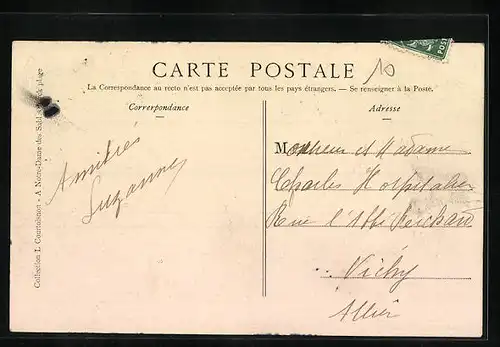 CARTE POSTALE
10
La Correspondance au recto n'est pas acceptée par tous les pays étrangers. — Se renseigner à la Poste.
Correspondance
Adresse
Amitiés
Suzanne
Monsieur et Madame
Charles Hospitalier
Rue l'Abbé
Vichy
Allier
Collection L. Courtubinot - A Notre-Dame des plage